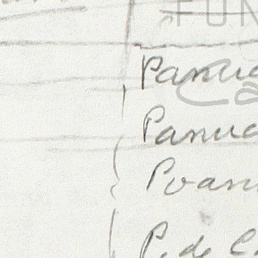 FUN
Panua
Panua
Poani
P. de C.